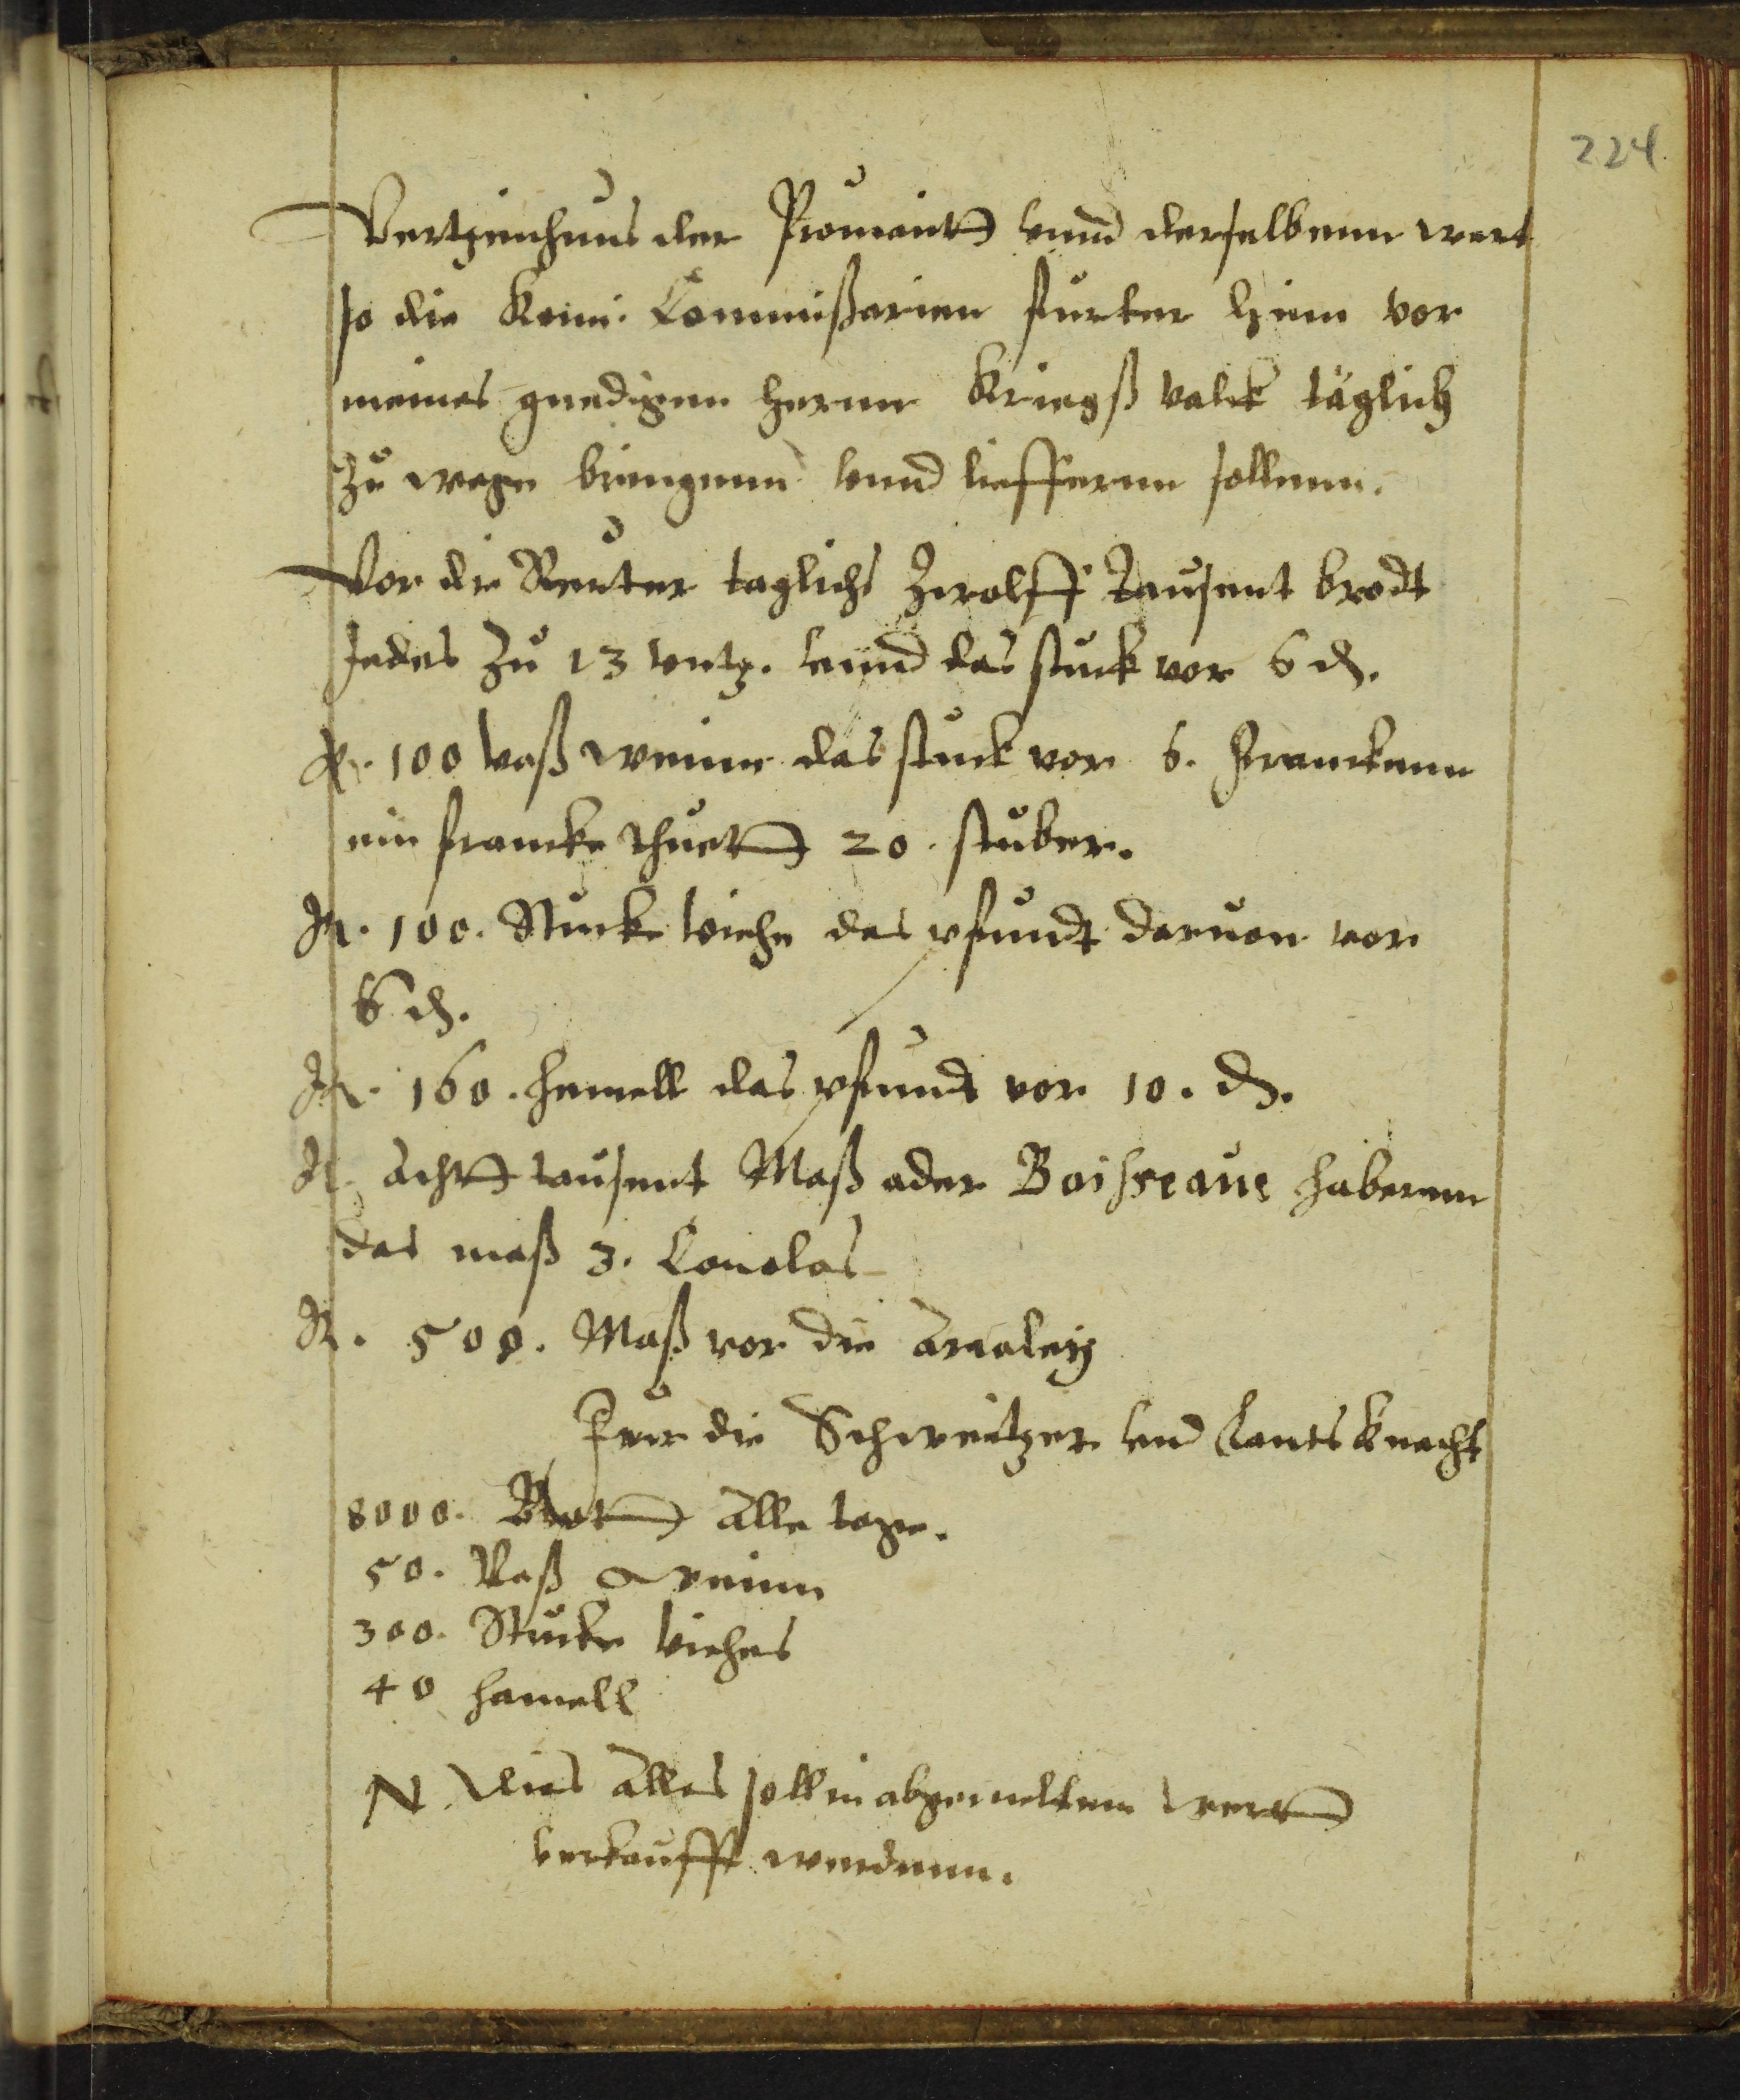 224
Vertzeichnus der Prouiantt vnnd derselbenn wert
so die Köni. Commißarien furter hinn vor
meines gnedigen herrn Kriegß valck täglich
zu wege bringenn vnnd lieffernn sollenn.
Vor die Reuter taglichs Zwolff Tausent brodt
Jedes zu 13 vntz. vnnd das stuck vor 6 ₰.
It. 100 vaß weinn das stuck vor 6. Franckenn
ein francke thuet 20. stuber.
It. 100. Stucke viehe das pfundt daruon vor
6 ₰.
It. 160. hamell das pfundt vor 10. ₰.
It. Acht tausent Maß oder Boisseaus habernn
das maß 3.
It. 500. Maß vor die
Fur die Schweitzer vnd Lantsknecht
8000. Brot alle tage.
50. Vaß weinn
300. Stucke viehes
40 hamell
N. Dies alles soll in abgemeltem wert
verkaufft werdenn.